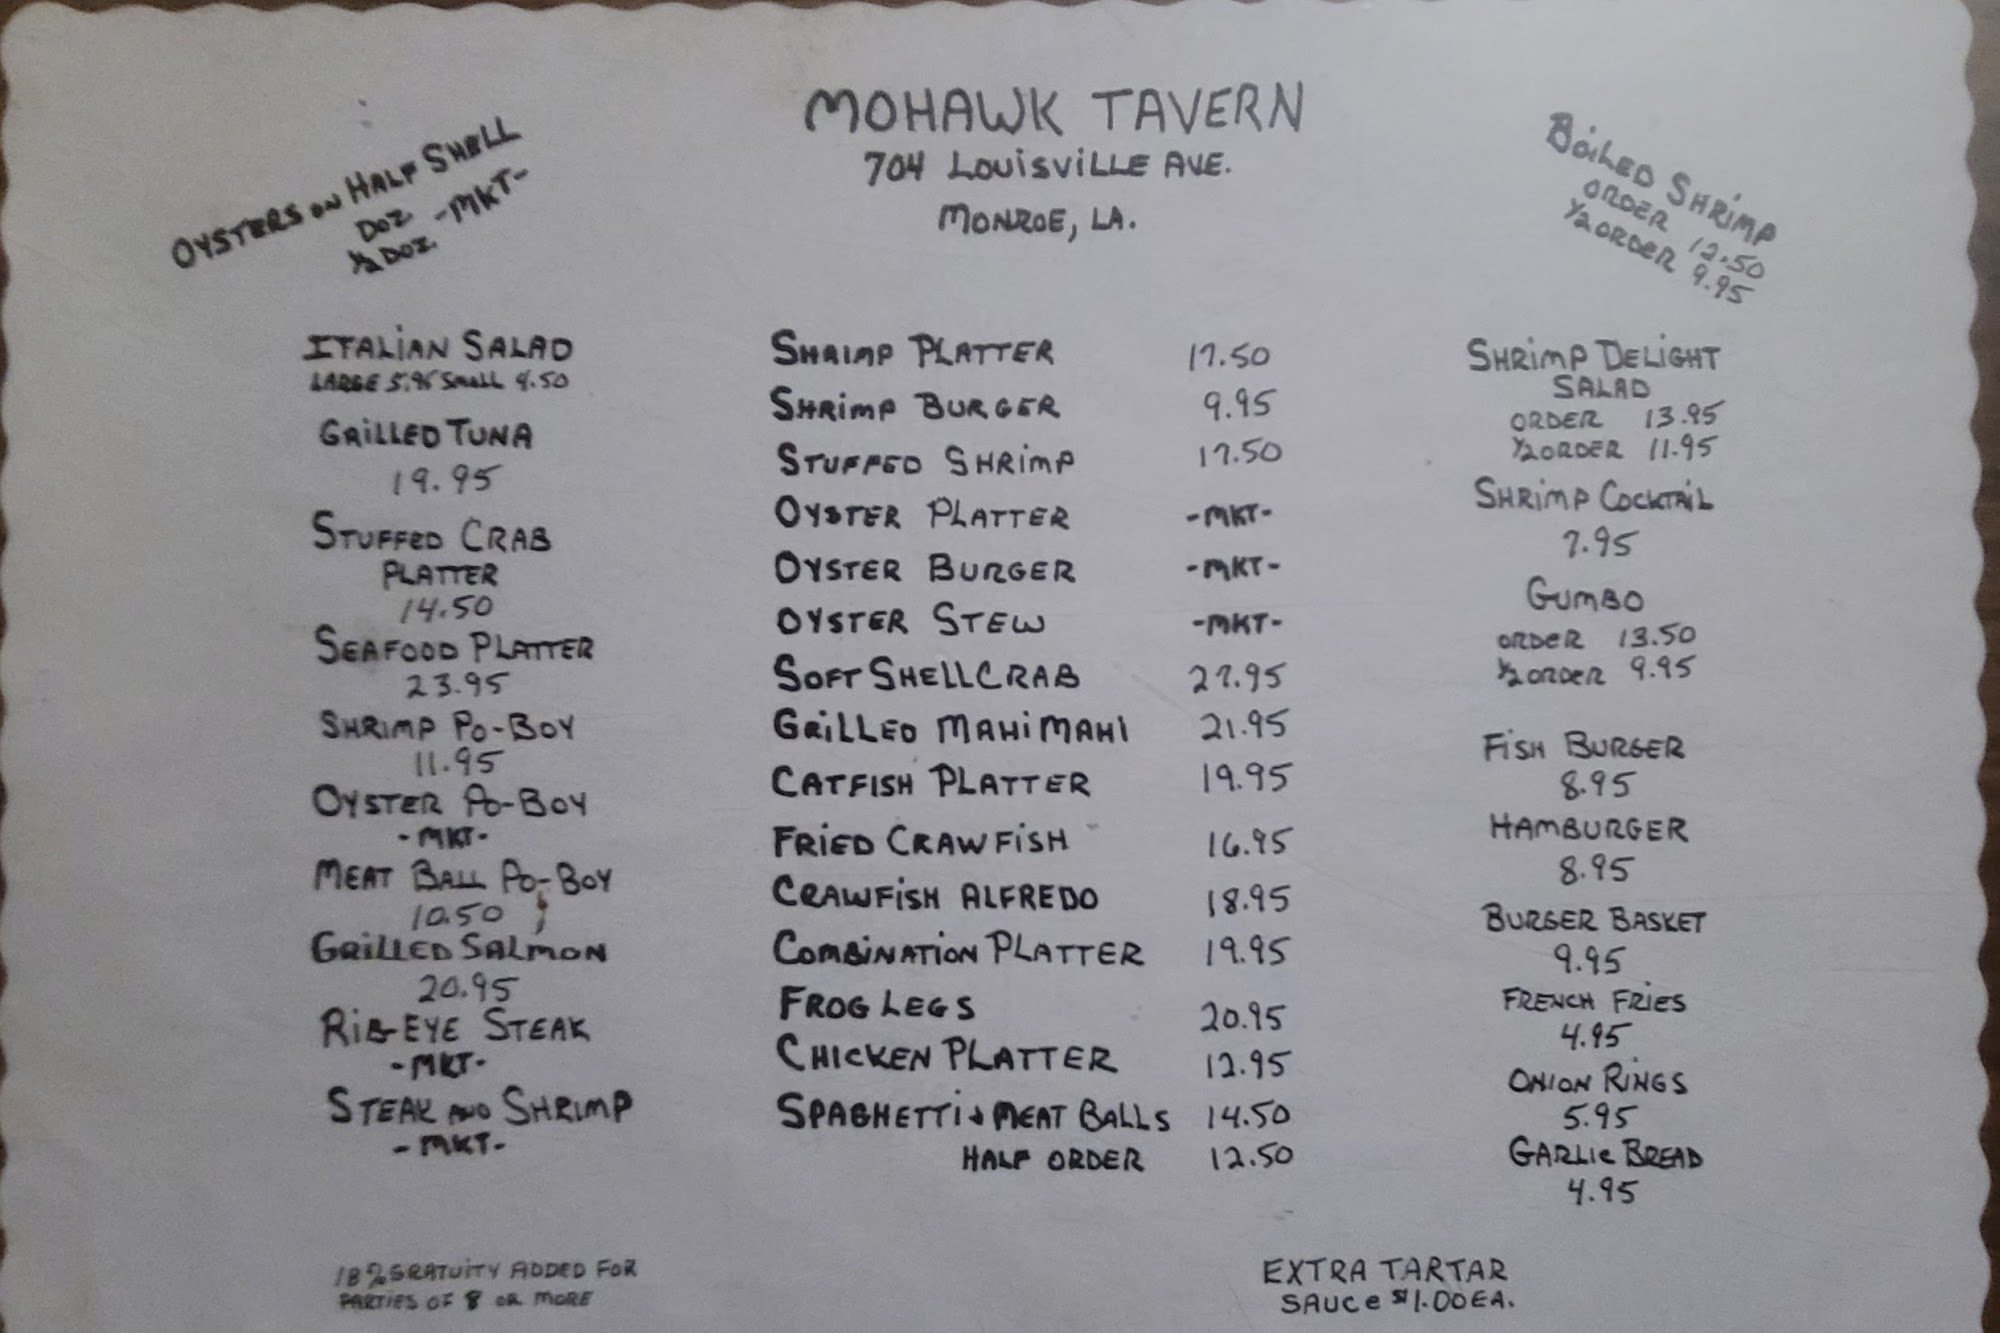 MOHAWK TAVERN
704 LOUISVILLE AVE.
MONROE, LA.
OYSTERS ON HALF SHELL
DOZ
1/2 DOZ. -MKT-
BOILED SHRIMP
ORDER 12.50
1/2 ORDER 9.95
ITALIAN SALAD
LARGE 5.95 SMALL 4.50
GRILLED TUNA
19.95
STUFFED CRAB
PLATTER
14.50
SEAFOOD PLATTER
23.95
SHRIMP PO-BOY
11.95
OYSTER PO-BOY
-MKT-
MEAT BALL PO-BOY
10.50
GRILLED SALMON
20.95
RIB-EYE STEAK
-MKT-
STEAK AND SHRIMP
-MKT-
SHRIMP PLATTER 17.50
SHRIMP BURGER 9.95
STUFFED SHRIMP 17.50
OYSTER PLATTER -MKT-
OYSTER BURGER -MKT-
OYSTER STEW -MKT-
SOFT SHELL CRAB 27.95
GRILLED MAHI MAHI 21.95
CATFISH PLATTER 19.95
FRIED CRAWFISH 16.95
CRAWFISH ALFREDO 18.95
COMBINATION PLATTER 19.95
FROG LEGS 20.95
CHICKEN PLATTER 12.95
SPAGHETTI & MEAT BALLS 14.50
HALF ORDER 12.50
SHRIMP DELIGHT
SALAD
ORDER 13.95
1/2 ORDER 11.95
SHRIMP COCKTAIL
7.95
GUMBO
ORDER 13.50
1/2 ORDER 9.95
FISH BURGER
8.95
HAMBURGER
8.95
BURGER BASKET
9.95
FRENCH FRIES
4.95
ONION RINGS
5.95
GARLIC BREAD
4.95
18% GRATUITY ADDED FOR
PARTIES OF 8 OR MORE
EXTRA TARTAR
SAUCE $1.00 EA.